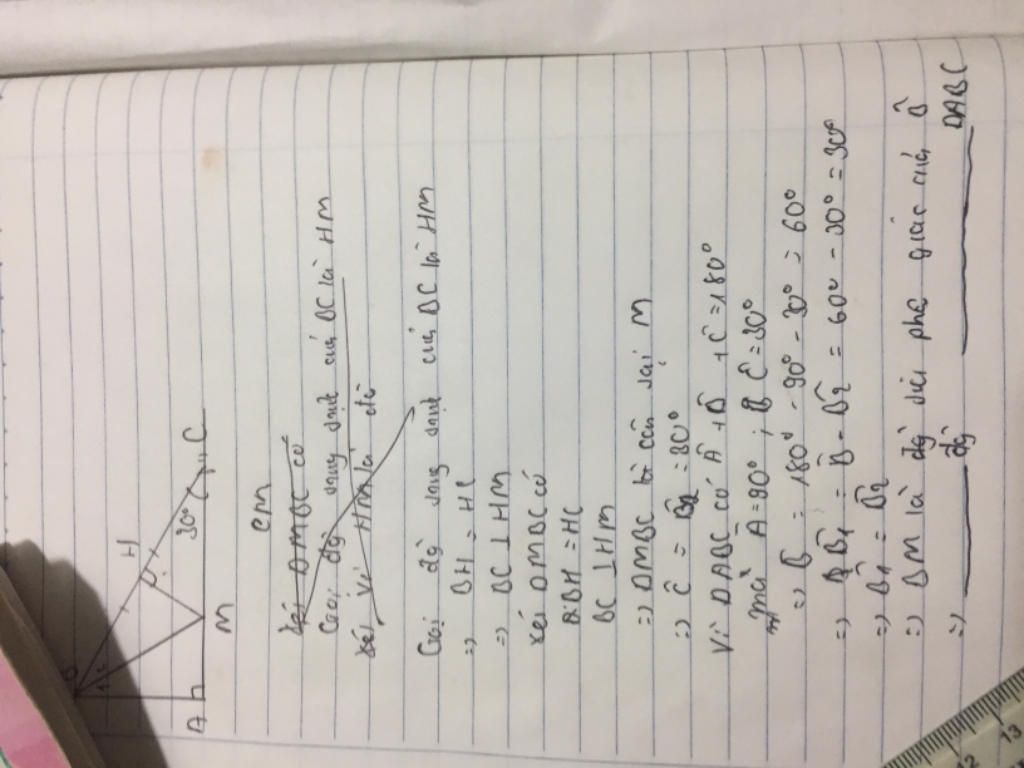 B
1 2
H
30°
A
M
C
CM
Xét ΔMBC có
Gọi đg trung trực của BC là HM
Xét Vì HM là đg
Gọi đg trung trực của BC là HM
=> BH = HC
=> BC ⊥ HM
xét ΔMBC có
BH = HC
BC ⊥ HM
=> ΔMBC là cân tại M
=> Ĉ = B̂2 = 30°
Vì ΔABC có Â + B̂ + Ĉ = 180°
mà Â = 90° ; Ĉ = 30°
=> B̂ = 180° - 90° - 30° = 60°
=> B̂1 = B̂ - B̂2 = 60° - 30° = 30°
=> B̂1 = B̂2
=> BM là đg phâ giác của B̂
=> đg ΔABC
12 13